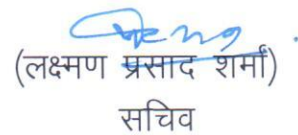 (लक्ष्मण प्रसाद शर्मा)
सचिव